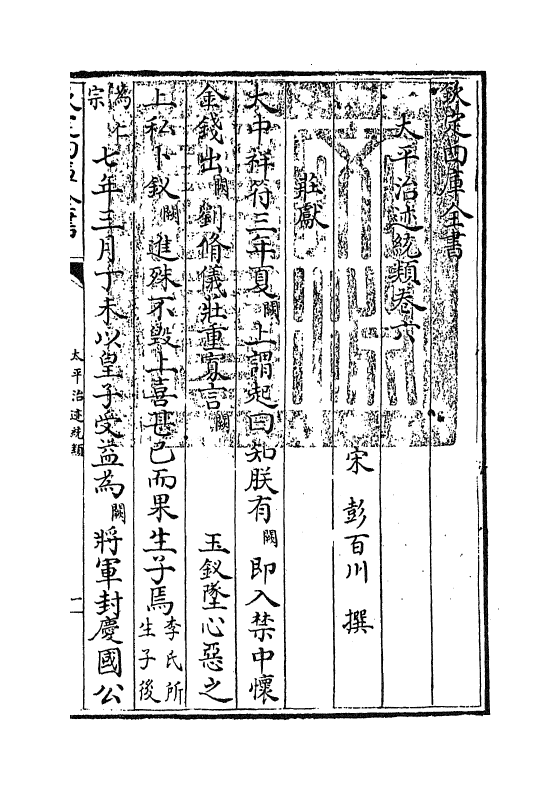 欽定四庫全書
太平治迹統類卷六
宋 彭百川 撰
莊獻
大中祥符三年夏闕上謂起曰知朕有闕即入禁中懷
金錢出闕劉脩儀莊重寡言闕玉釵墜心惡之
上私卜釵闕進殊不毀上喜甚已而果生子焉李氏所生子後
為仁宗七年三月丁未以皇子受益為闕將軍封慶國公
欽定四庫全書
太平治迹統類
一